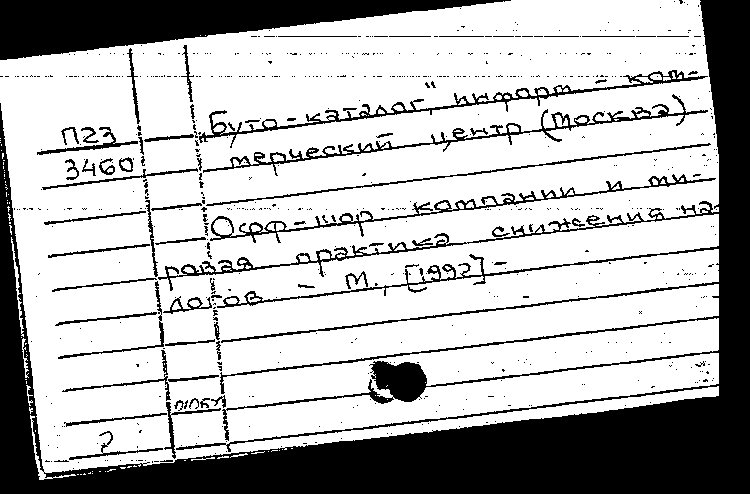 П23
3460
„Буто-каталог", информ-ком-
мерческий центр (Москва)
Офф-шор компании и ми-
ровая практика снижения на-
логов – М., [1992] –
?